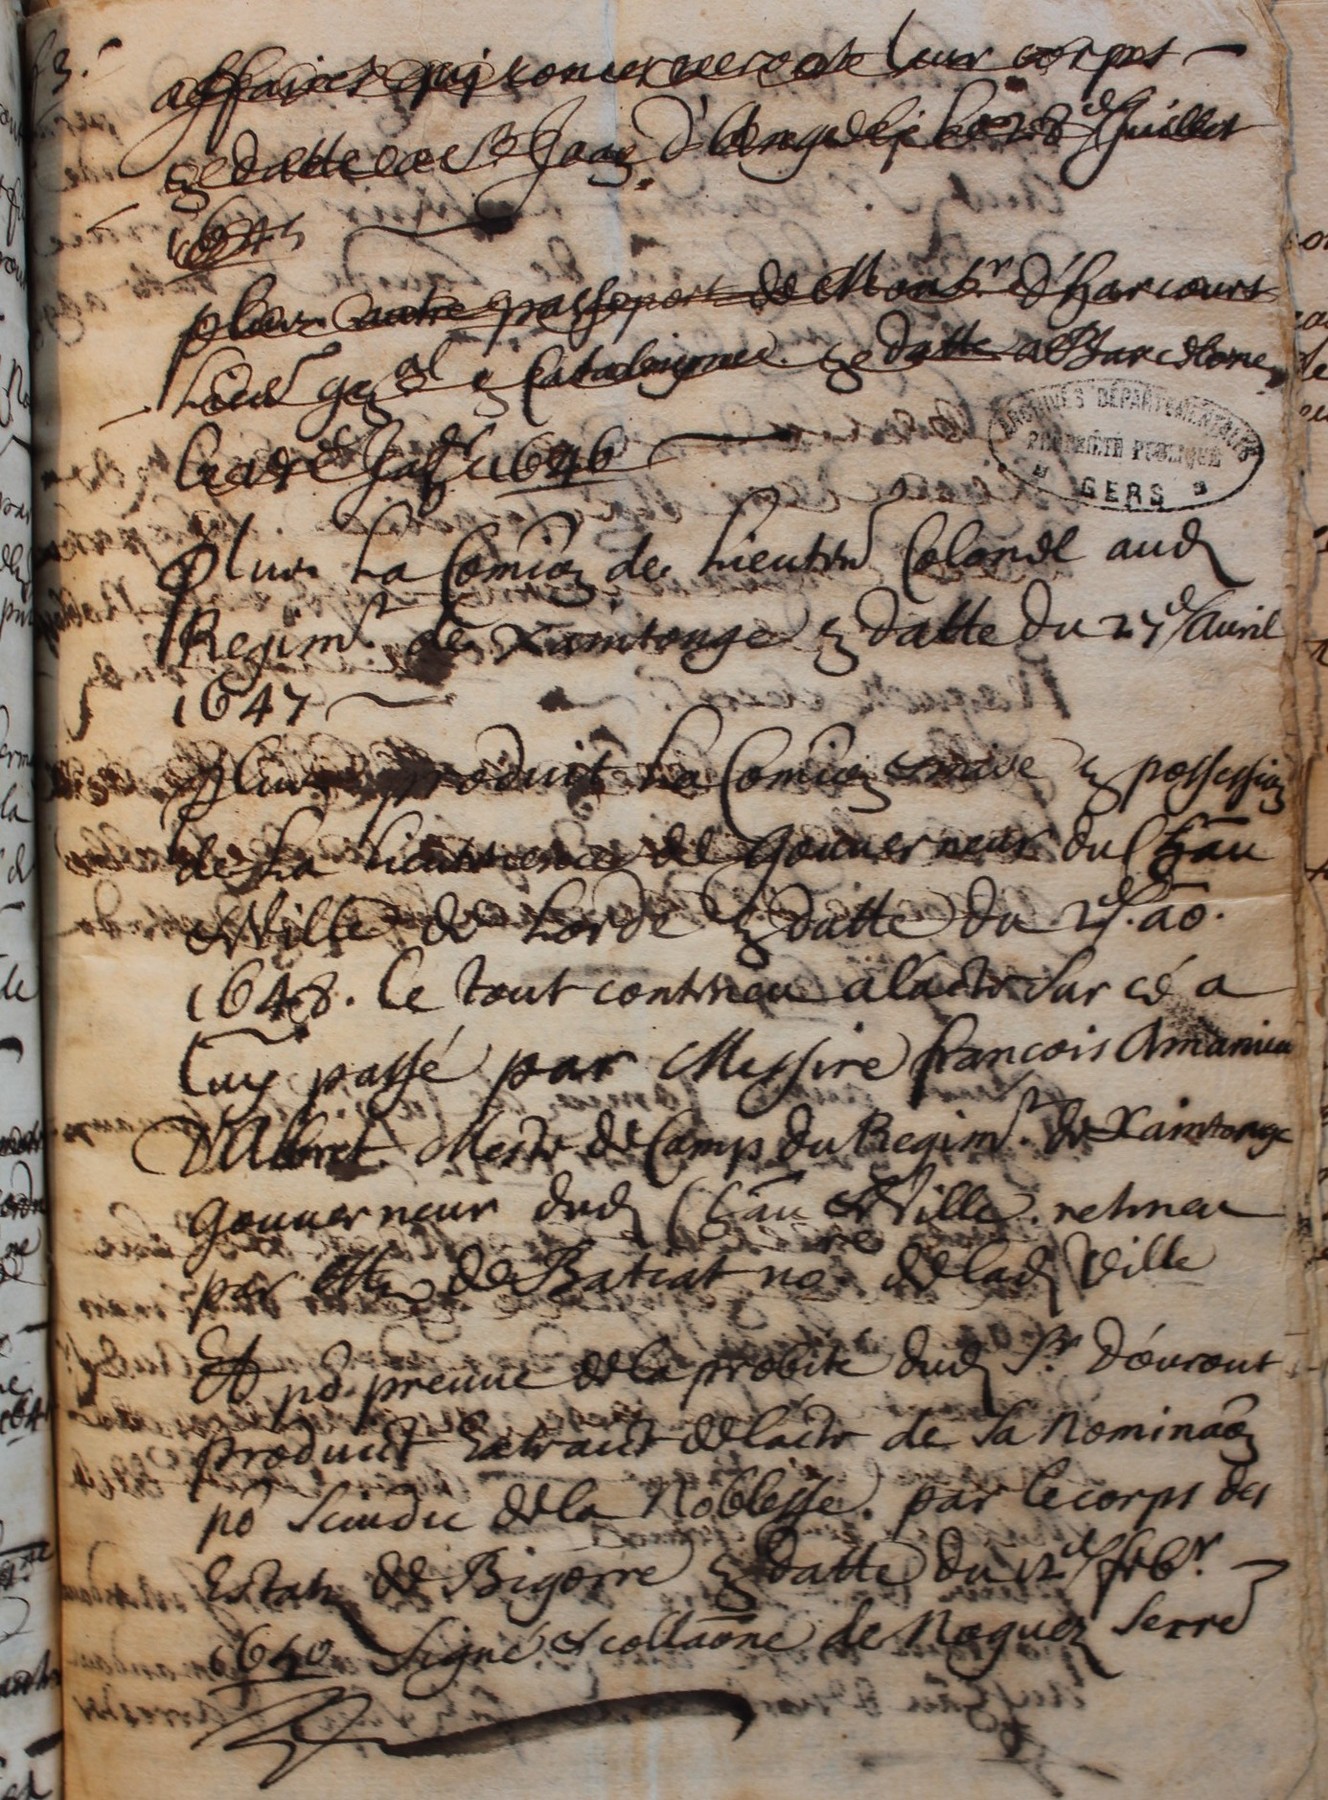 affaires qui concerneront leur corps
en datte de St Jean d'Angeli le 28e Juillet
1645
plus autre passeport de Monsr. d'Harcourt
Lieut gnal en Catalougne en datte a Barcelone
Janr 1646
ARCHIVES DÉPARTEMENTALES
PROPRIÉTÉ PUBLIQUE
GERS
Plus La Comion de Lieutnt Colonel aud
Regimt. de Xaintonge en datte du 27e Avril
1647
Plus produit La Comion en possession
de La lieutnence de Gouverneur du Chau
et Ville de Lorde en datte du 2e. ao.
1648. le tout conteneu a l'acte sur cé a
luy passé par Messire françois Amanieu
D'Albret Mestre de Camp du Regimt. de Xaintonge
gouverneur dud Chau et Ville. reteneu
par Me de Batcat nore de lad Ville
Et po. preuve de la probité dud Sr. D'óurout
produict Extraict de l'acte de sa Nominaon
po Scindic de la Noblesse. par le corps des
Estatz de Bigorre en datte du 12e febr.
1640 Signé et collaoné de Noguez Serre